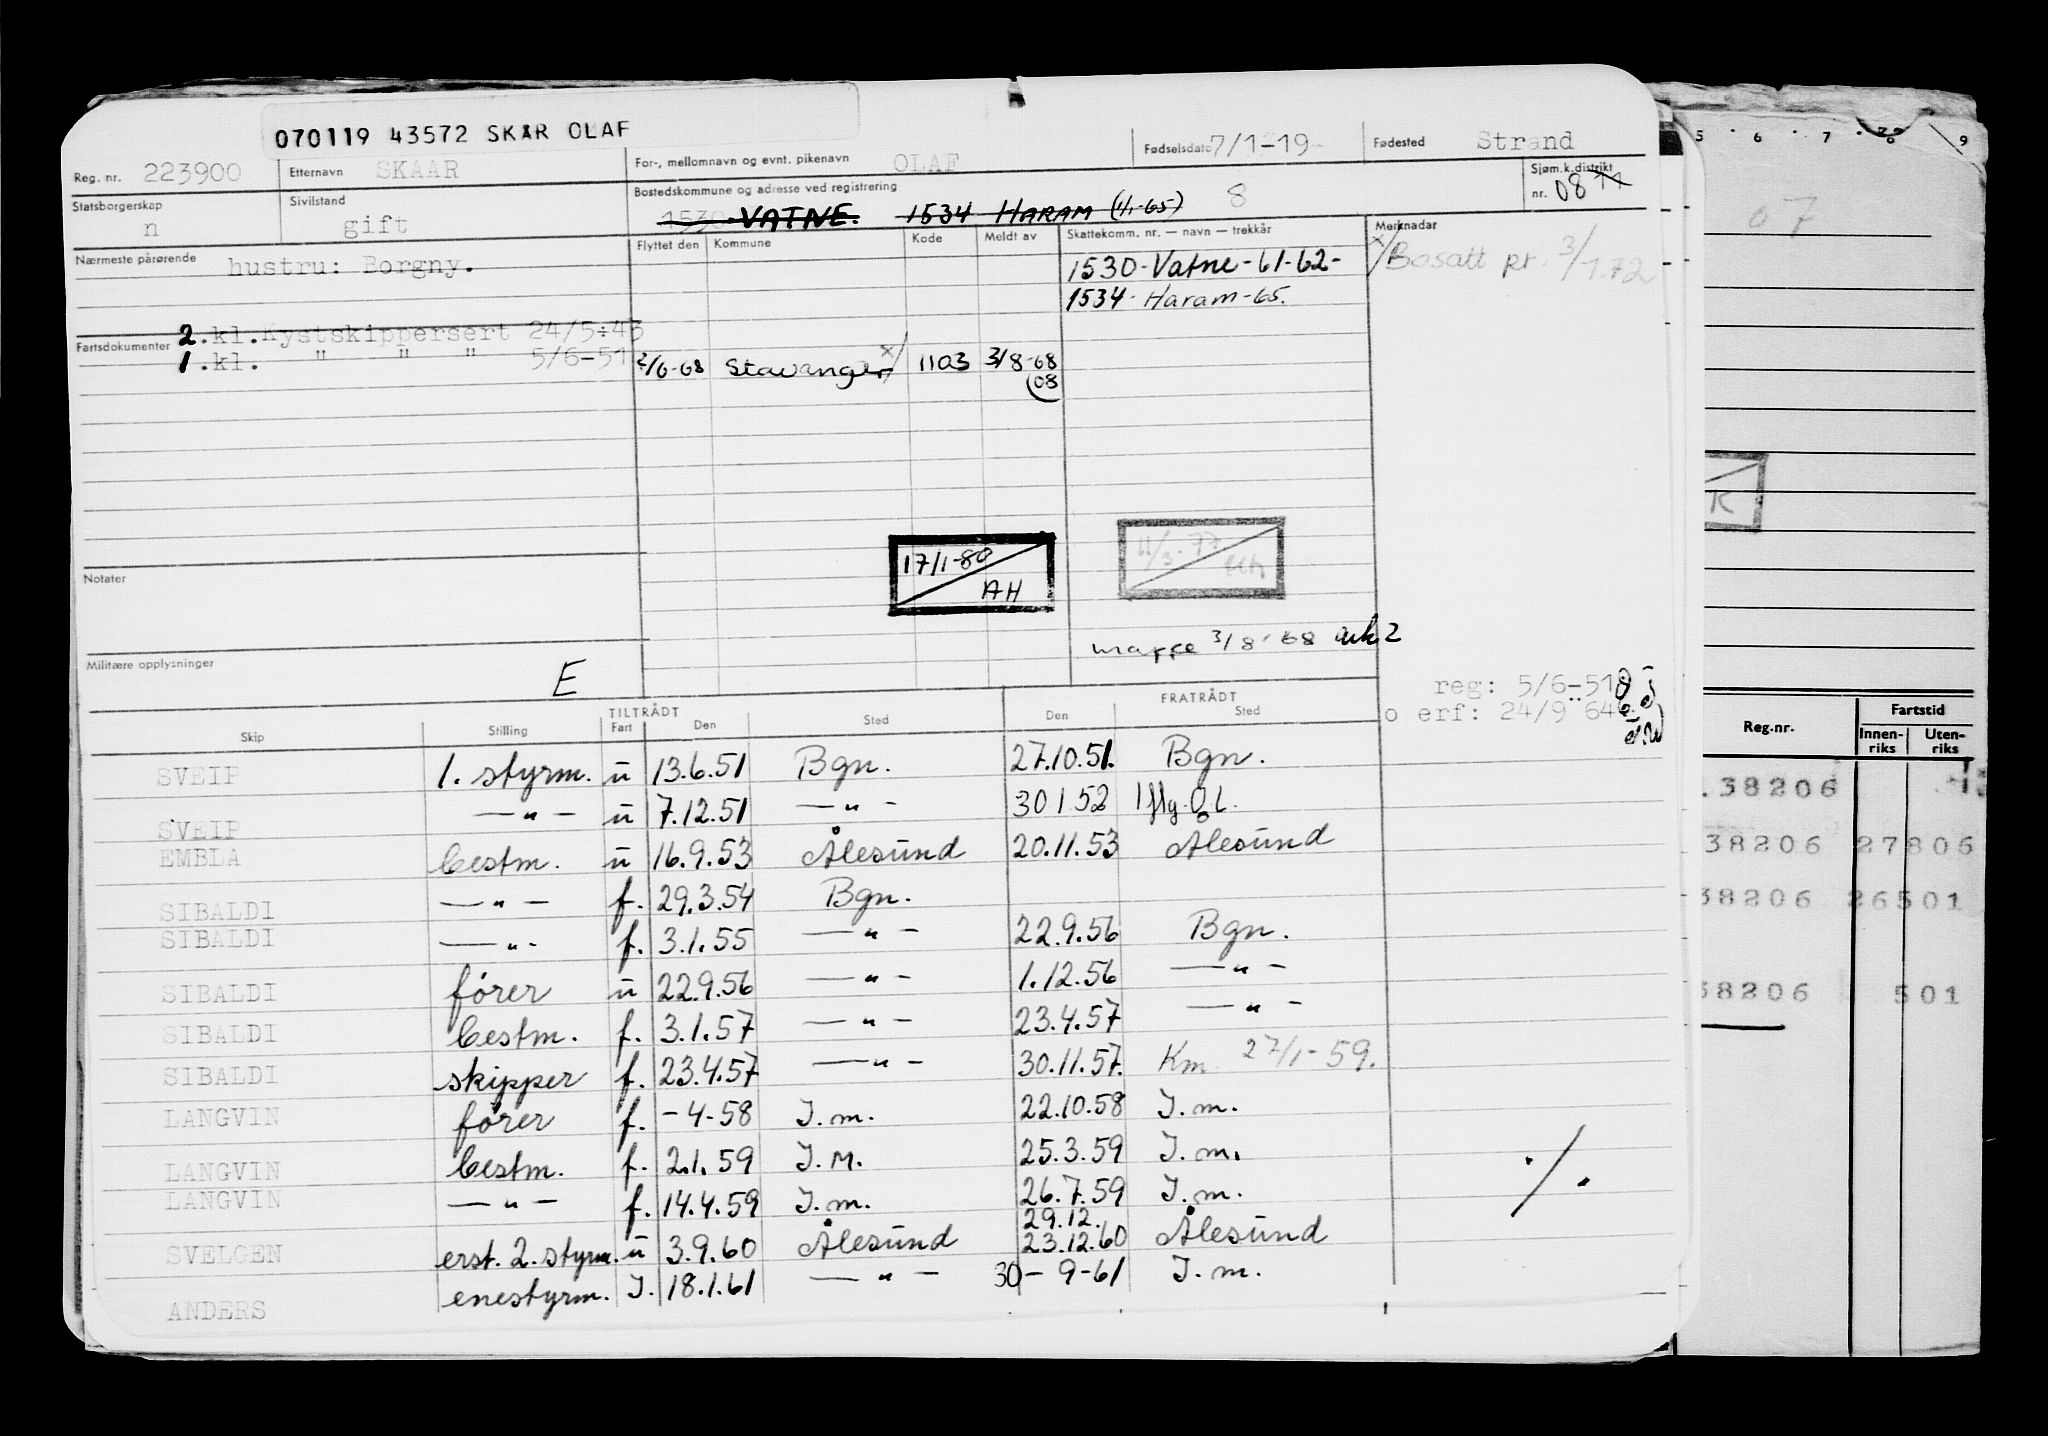 070119 43572 SKAR OLAF
Reg. nr. 223900 Etternavn SKAAR For-, mellomnavn og evnt. pikenavn OLAF Fødselsdato 7/1-19 Fødested Strand
Statsborgerskap n Sivilstand gift Bostedskommune og adresse ved registrering 1530 VATNE. 1534 HARAM (1/1-65) 8 Sjøm.k.distrikt nr. 08 11
Nærmeste pårørende hustru: Borgny. Flyttet den Kommune Kode Meldt av Skattekomm. nr. — navn — trekkår Merknader
1530-Vatne-61-62- x/ Bosatt pr. 3/1.72
1534-Haram-65.
Fartsdokumenter 2.kl.Kystskippersert 24/5÷43
1.kl. " " " 5/6-51 2/6-68 Stavanger x/ 1103 3/8-68
(08
17/1-80
AH
11/3-77
Notater
mappe 3/8-68 ark. 2
Militære opplysninger E
reg: 5/6-51
o erf: 24/9 64
Skip Stilling TILTRÅDT Fart Den Sted FRATRÅDT Den Sted
SVEIP 1. styrm. u 13.6.51 Bgn. 27.10.51. Bgn.
SVEIP — " — u 7.12.51 — " — 30 1 52 Iflg. O.L.
EMBLA bestm. u 16.9.53 Ålesund 20.11.53 Ålesund
SIBALDI — " — f. 29.3.54 Bgn.
SIBALDI — " - f. 3.1.55 — " — 22.9.56 Bgn.
SIBALDI fører u 22.9.56 — " — 1.12.56 — " —
SIBALDI bestm. f. 3.1.57 — " — 23.4.57 — " —
SIBALDI skipper f. 23.4.57 — " — 30.11.57. Km 27/1-59.
LANGVIN fører f. -4-58 I.m. 22.10.58 I.m.
LANGVIN bestm. f. 2.1.59 I.M. 25.3.59 I.m.
LANGVIN — " — f. 14.4.59 I.m. 26.7.59 I.m.
29.12.
SVELGEN erst. 2. styrm. u 3.9.60 Ålesund 23.12.60 Ålesund
ANDERS enestyrm. I. 18.1.61 — " — 30 - 9-61 I.m.
./.
5 6 7 9
07
K
Reg.nr. Fartstid
Innenriks Utenriks
38206
38206 27806
38206 26501
38206 501